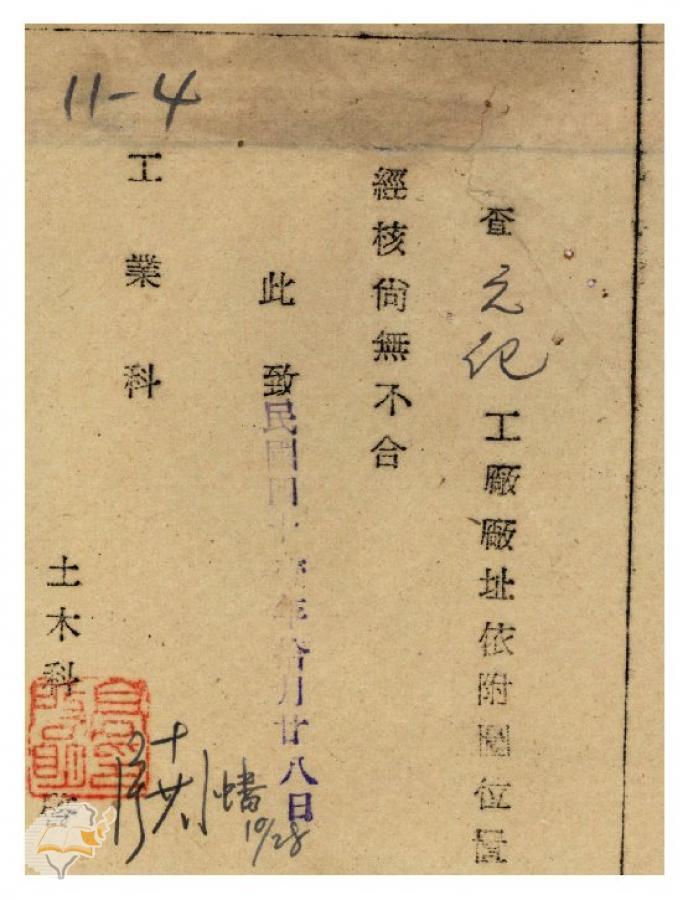 11-4
查元紀工廠廠址依附圖位置
經核尚無不合
此致
民國四十年拾月廿八日
工業科
土木科 啓
10/28